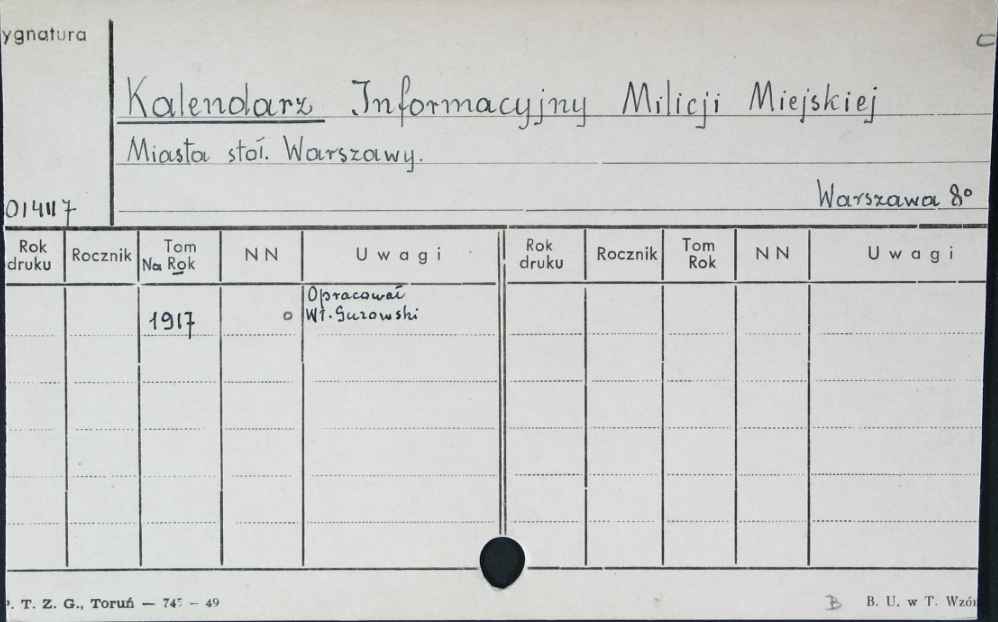 ygnatura
Kalendarz Informacyjny Milicji Miejskiej
Miasta stoł. Warszawy.
Warszawa 8°
014117
Rok druku Rocznik Tom Na Rok NN Uwagi Rok druku Rocznik Tom Rok NN Uwagi
Opracował
1917 o Wł. Gurowski
T. Z. G., Toruń — 74 – 49 B B. U. w T. Wzór